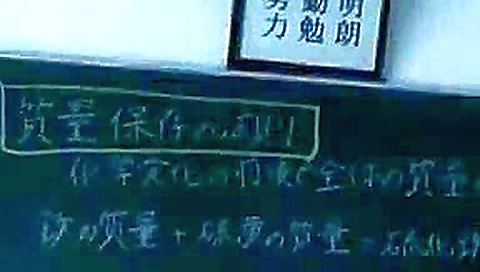 明朗
勤勉
努力
質量保存の法則
化学変化の前後で全体の質量
鉄の質量+硫黄の質量=硫化鉄